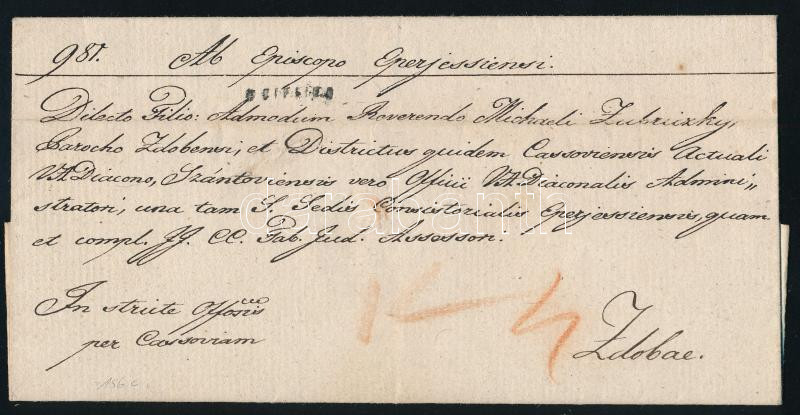 987. Ab Episcopo Eperjessiensi.
Dilecto Filio: Admodum Reverendo Michaeli Zubriczky,
Parocho Zdobensi; et Districtus quidem Cassoviensis Actuali
VA Diacono, Szántoviensis vero Officii VA Diaconalis Admini„
stratori, una tam S. Sedis Consistorialis Eperjessiensis, quam
et compl. JJ. CC. Tab. Jud. Assessori.
In stricte Offosis
per Cassoviam
Zdobae.
156 C
darabanth